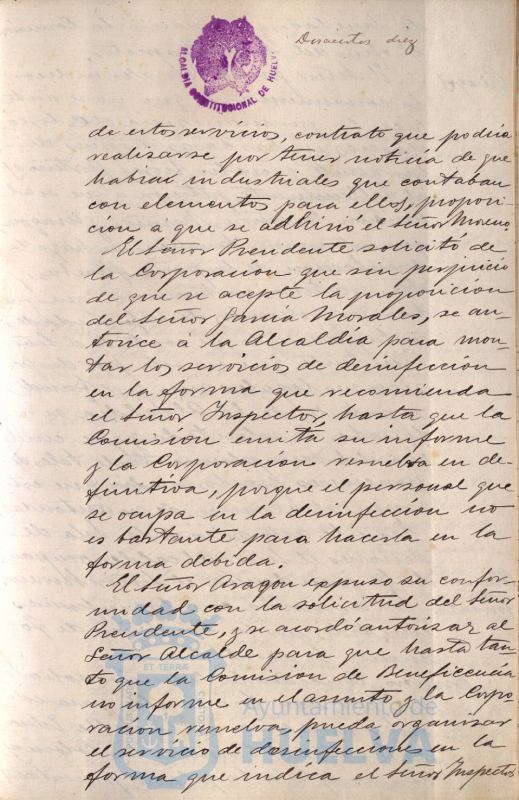 Doscientos diez
ALCALDIA CONSTITUCIONAL DE HUELVA
de estos servicios, contrato que podria
realizarse por tener noticia de que
habiax industriales que contaban
con elementos para ello, proposi-
cion a que se adhirió el Señor Moreno.
El Señor Presidente solicitó de
la Corporacion que sin perjuicio
de que se acepte la proposicion
del Señor Garcia Morales, se au-
torice á la Alcaldía para mon-
tar los servicios de desinfeccion
en la forma que recomienda
el Señor Inspector, hasta que la
Comision emita su informe
y la Corporacion resuelva en de-
finitiva, porque el personal que
se ocupa en la desinfeccion no
es bastante para hacerla en la
forma debida.
El Señor Aragon expuso su confor-
midad con la solicitud del Señor
Presidente, y se acordó autorizar al
Señor Alcalde para que hasta tan-
to que la Comision de Beneficencia
no informe en el asunto y la Corpo-
racion resuelva, pueda organizar
el servicio de desinfecciones en la
forma que indica el Señor Inspector
ET TERRÆ
Ayuntamiento de
HUELVA